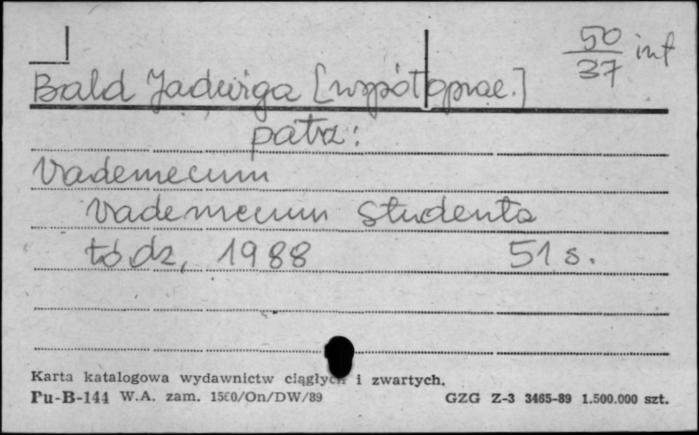 50
37 inf
Bald Jadwiga [współoprac.]
patrz:
Vademecum
Vademecum Studenta
Łódź, 1988 51 s.
Karta katalogowa wydawnictw ciągłych i zwartych.
Pu-B-144 W.A. zam. 1500/On/DW/89 GZG Z-3 3465-89 1.500.000 szt.